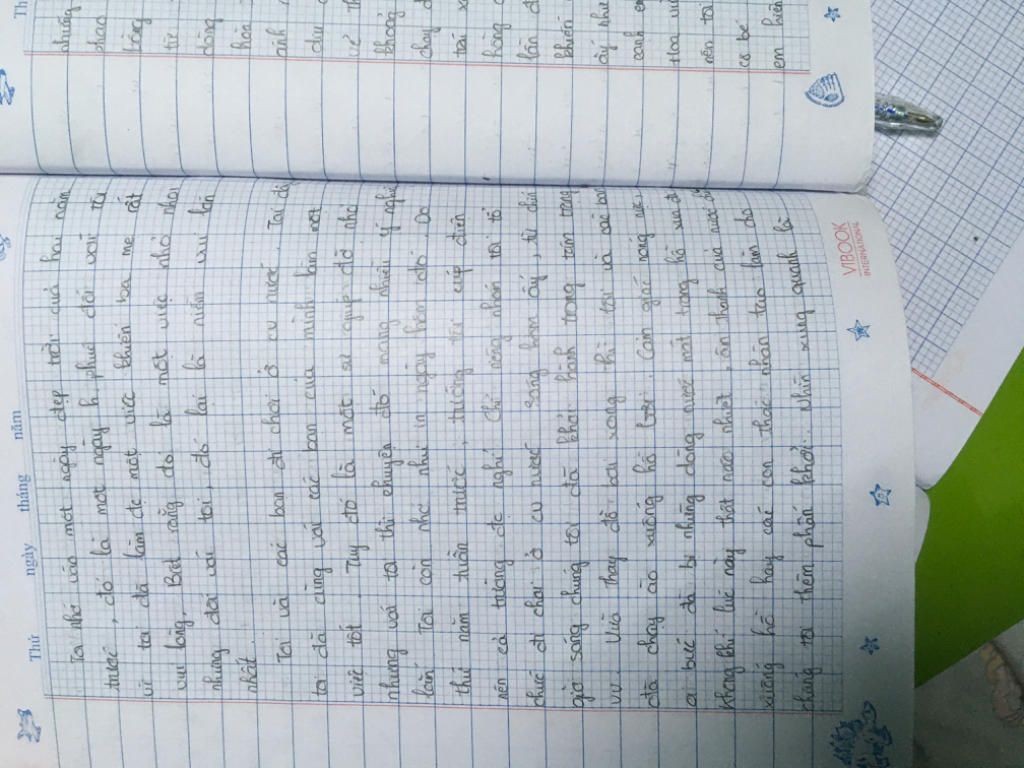 Thứ ngày tháng năm
Tôi nhớ vào một ngày đẹp trời của hai năm
trước, đó là một ngày h. phúc đối với tôi
vì tôi đã làm đc một việc khiến ba mẹ rất
vui lòng. Biết rằng đó là một việc nhỏ nhoi
nhưng đối với tôi, đó lại là niềm vui lớn
nhất.
Tôi và các bạn đi chơi ở cv nước. Tại đó
tôi đã cùng với các bạn của mình làm một
việc tốt. Tuy đó là một sự giúp đỡ nhỏ
nhưng với tôi thì chuyện đó mang nhiều ý nghĩa
lắm. Tôi còn nhớ như in ngày hôm đó. Do
thứ năm tuần trước, trường tôi cúp điện
nên cả trường đc nghỉ. Chi nóng nhóm tôi tổ
chức đi chơi ở cv nước. Sáng hôm ấy, từ chín
giờ sáng chúng tôi đã khởi hành trong tâm trạng
vv. Vừa thay đồ bơi xong thì tôi và các bạn
đã chạy ào xuống hồ bơi. Cảm giác nóng nực,
oi bức đã bị những dòng nước mát trong hồ xua đi
không khí lúc này thật náo nhiệt, âm thanh của nước
xuống hồ hay các con thác nhân tạo làm cho
chúng tôi thêm phấn khởi. Nhìn xung quanh là
VIBOOK
INTERNATIONAL
Th
những
phao
bằng
từ
dòng
hòa
ánh
du
về
khoảng
chạy
trái
hồng
lần
khiến
ấy như
canh
toa
nên tôi
cô bé
em